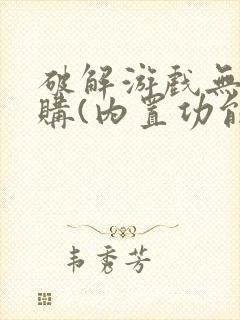 破解游戏無
購(内置功能
韦秀芳